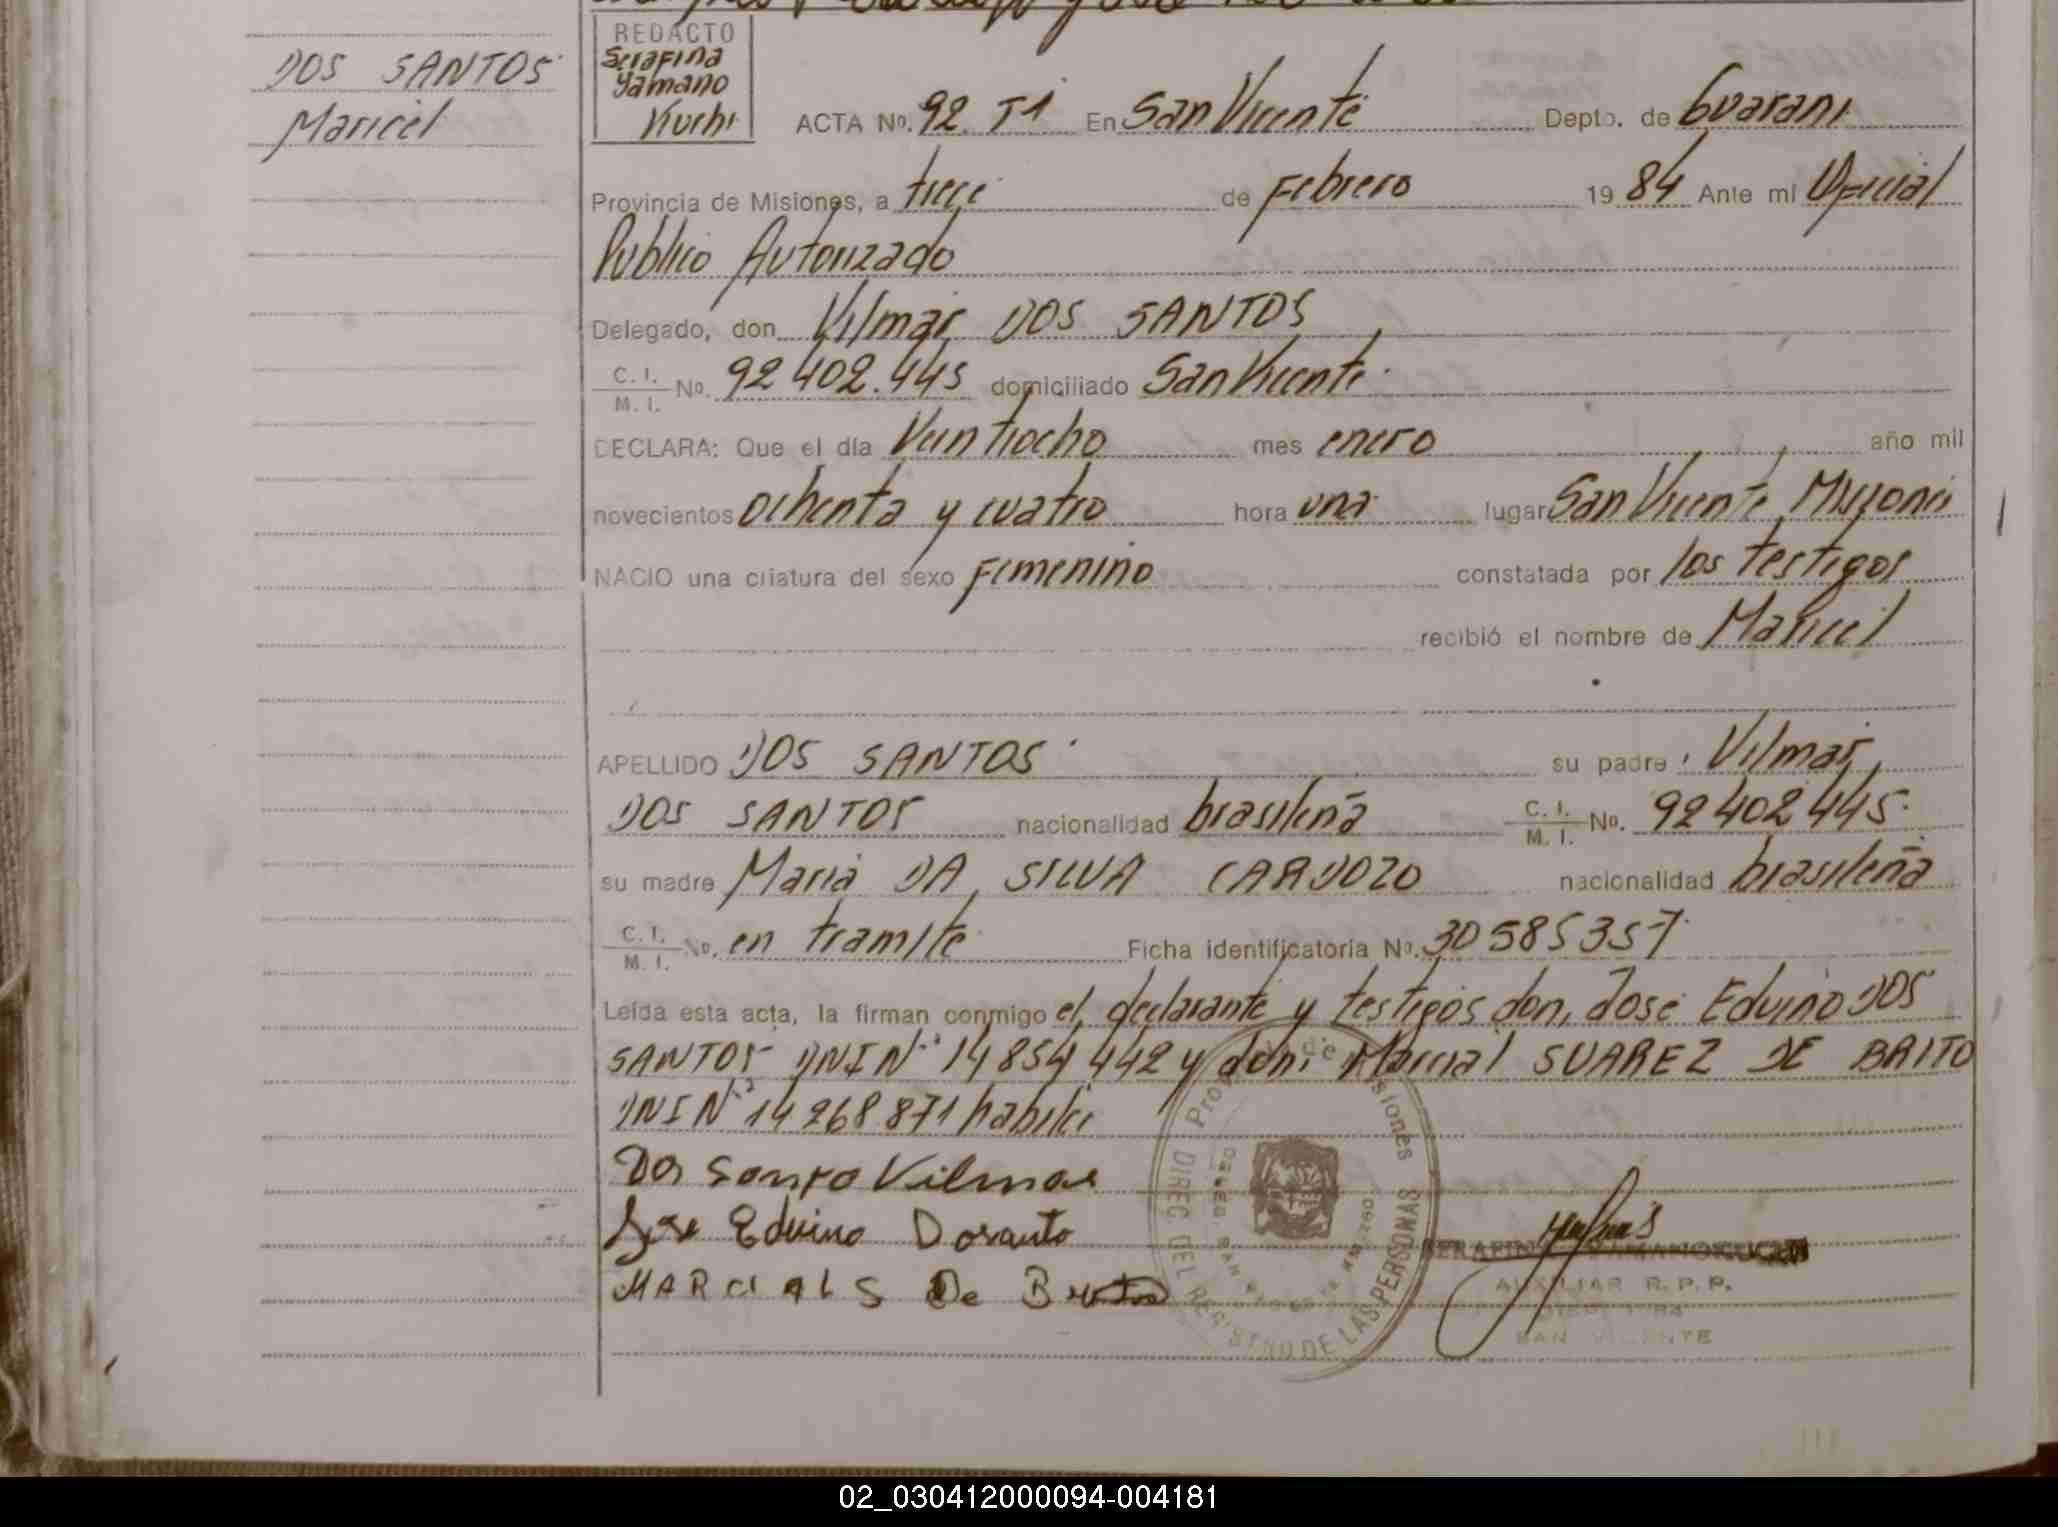 DOS SANTOS
Maricel
REDACTO
Serafina
Yamano
Kuchi
ACTA No. 92 T1 En San Vicente Depto. de Guarani
Provincia de Misiones, a trece de Febrero 19 84 Ante mi Oficial
Publico Autorizado
Delegado, don Vilmar DOS SANTOS
C. I. / M. I. No. 92 402.445 domiciliado San Vicente
DECLARA: Que el día Veintiocho mes enero año mil
novecientos ochenta y cuatro hora una lugar San Vicente, Misiones
NACIO una criatura del sexo Femenino constatada por los testigos
recibió el nombre de Maricel
APELLIDO DOS SANTOS su padre: Vilmar
DOS SANTOS nacionalidad brasileña C. I. / M. I. No. 92 402 445
su madre Maria DA SILVA CARDOZO nacionalidad brasileña
C. I. / M. I. No. en tramite Ficha identificatoria No. 30 585 357
Leída esta acta, la firman conmigo el declarante y testigos don, José Eduino DOS
SANTOS DNI Nº 14 854 442 y don: Marcial SUAREZ DE BRITO
DNI Nº 14 268.871 habiles
Dos Santo Vilmar
Jose Eduino Dosanto
MARCIAL S De Brito
Provincia de Misiones
DIREC. DEL REGISTRO DE LAS PERSONAS
AUXILIAR R. P. P.
SAN VICENTE
02_030412000094-004181